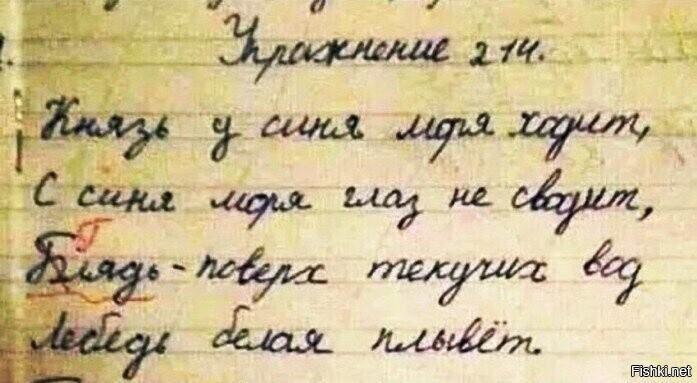 Упражнение 214.
Князь у синя моря ходит,
С синя моря глаз не сводит,
Г
Блядь - поверх текучих вод
Лебедь белая плывёт.
Fishki.net